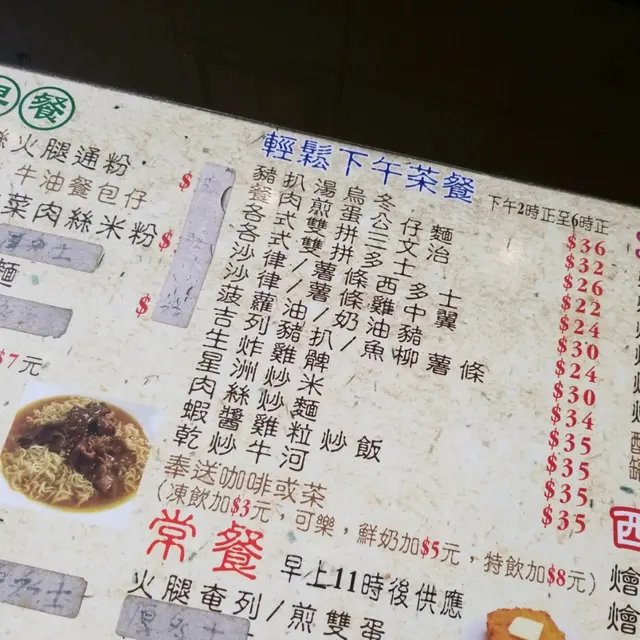 餐
火腿通粉
牛油餐包仔 $
菜肉絲米粉
麵 $
$7元
輕鬆下午茶餐 下午2時正至6時正
豬扒湯烏冬 $36
餐肉煎蛋公仔麵 $32
各式雙拼三文治 $26
各式雙拼多士 $22
沙律/薯條西多士 $24
沙律/薯條雞中翼 $30
菠蘿油/奶油豬 $24
吉列豬扒/魚柳 $30
生炸雞髀薯條 $34
星洲炒米 $35
肉絲炒麵 $35
蝦醬雞粒炒飯 $35
乾炒牛河 $35
奉送咖啡或茶
(凍飲加$3元，可樂，鮮奶加$5元，特飲加$8元)
常餐 早上11時後供應
火腿奄列/煎雙蛋
西
燴
燴